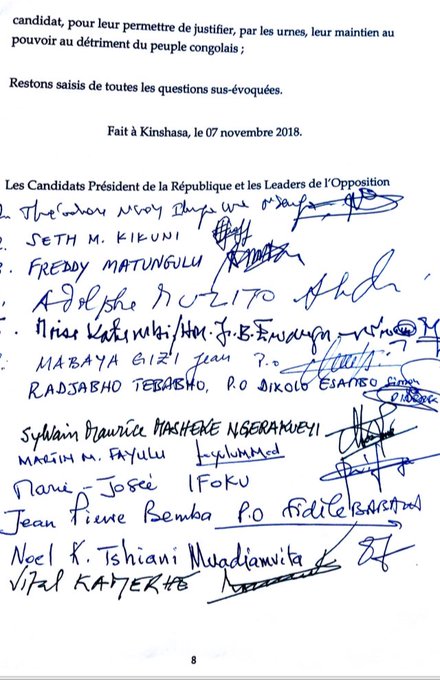 candidat, pour leur permettre de justifier, par les urnes, leur maintien au
pouvoir au détriment du peuple congolais ;
Restons saisis de toutes les questions sus-évoquées.
Fait à Kinshasa, le 07 novembre 2018.
Les Candidats Président de la République et les Leaders de l'Opposition
Théodore Ngoy
SETH M. KIKUNI
FREDDY MATUNGULU
Adolphe MUZITO
Moïse Katumbi/Hon. J.B. Ewanga
MABAYA GIZI Jean P.O
RADJABHO TEBABHO, P.O DIKOLO ESAMBO Simon
Sylvain Maurice MASHEKE NGERAKUEYI
MARTIN M. FAYULU
Marie-Josée IFOKU
Jean Pierre Bemba P.O Fidèle BABALA
Noel K. Tshiani Muadiamvita
Vital KAMERHE
8